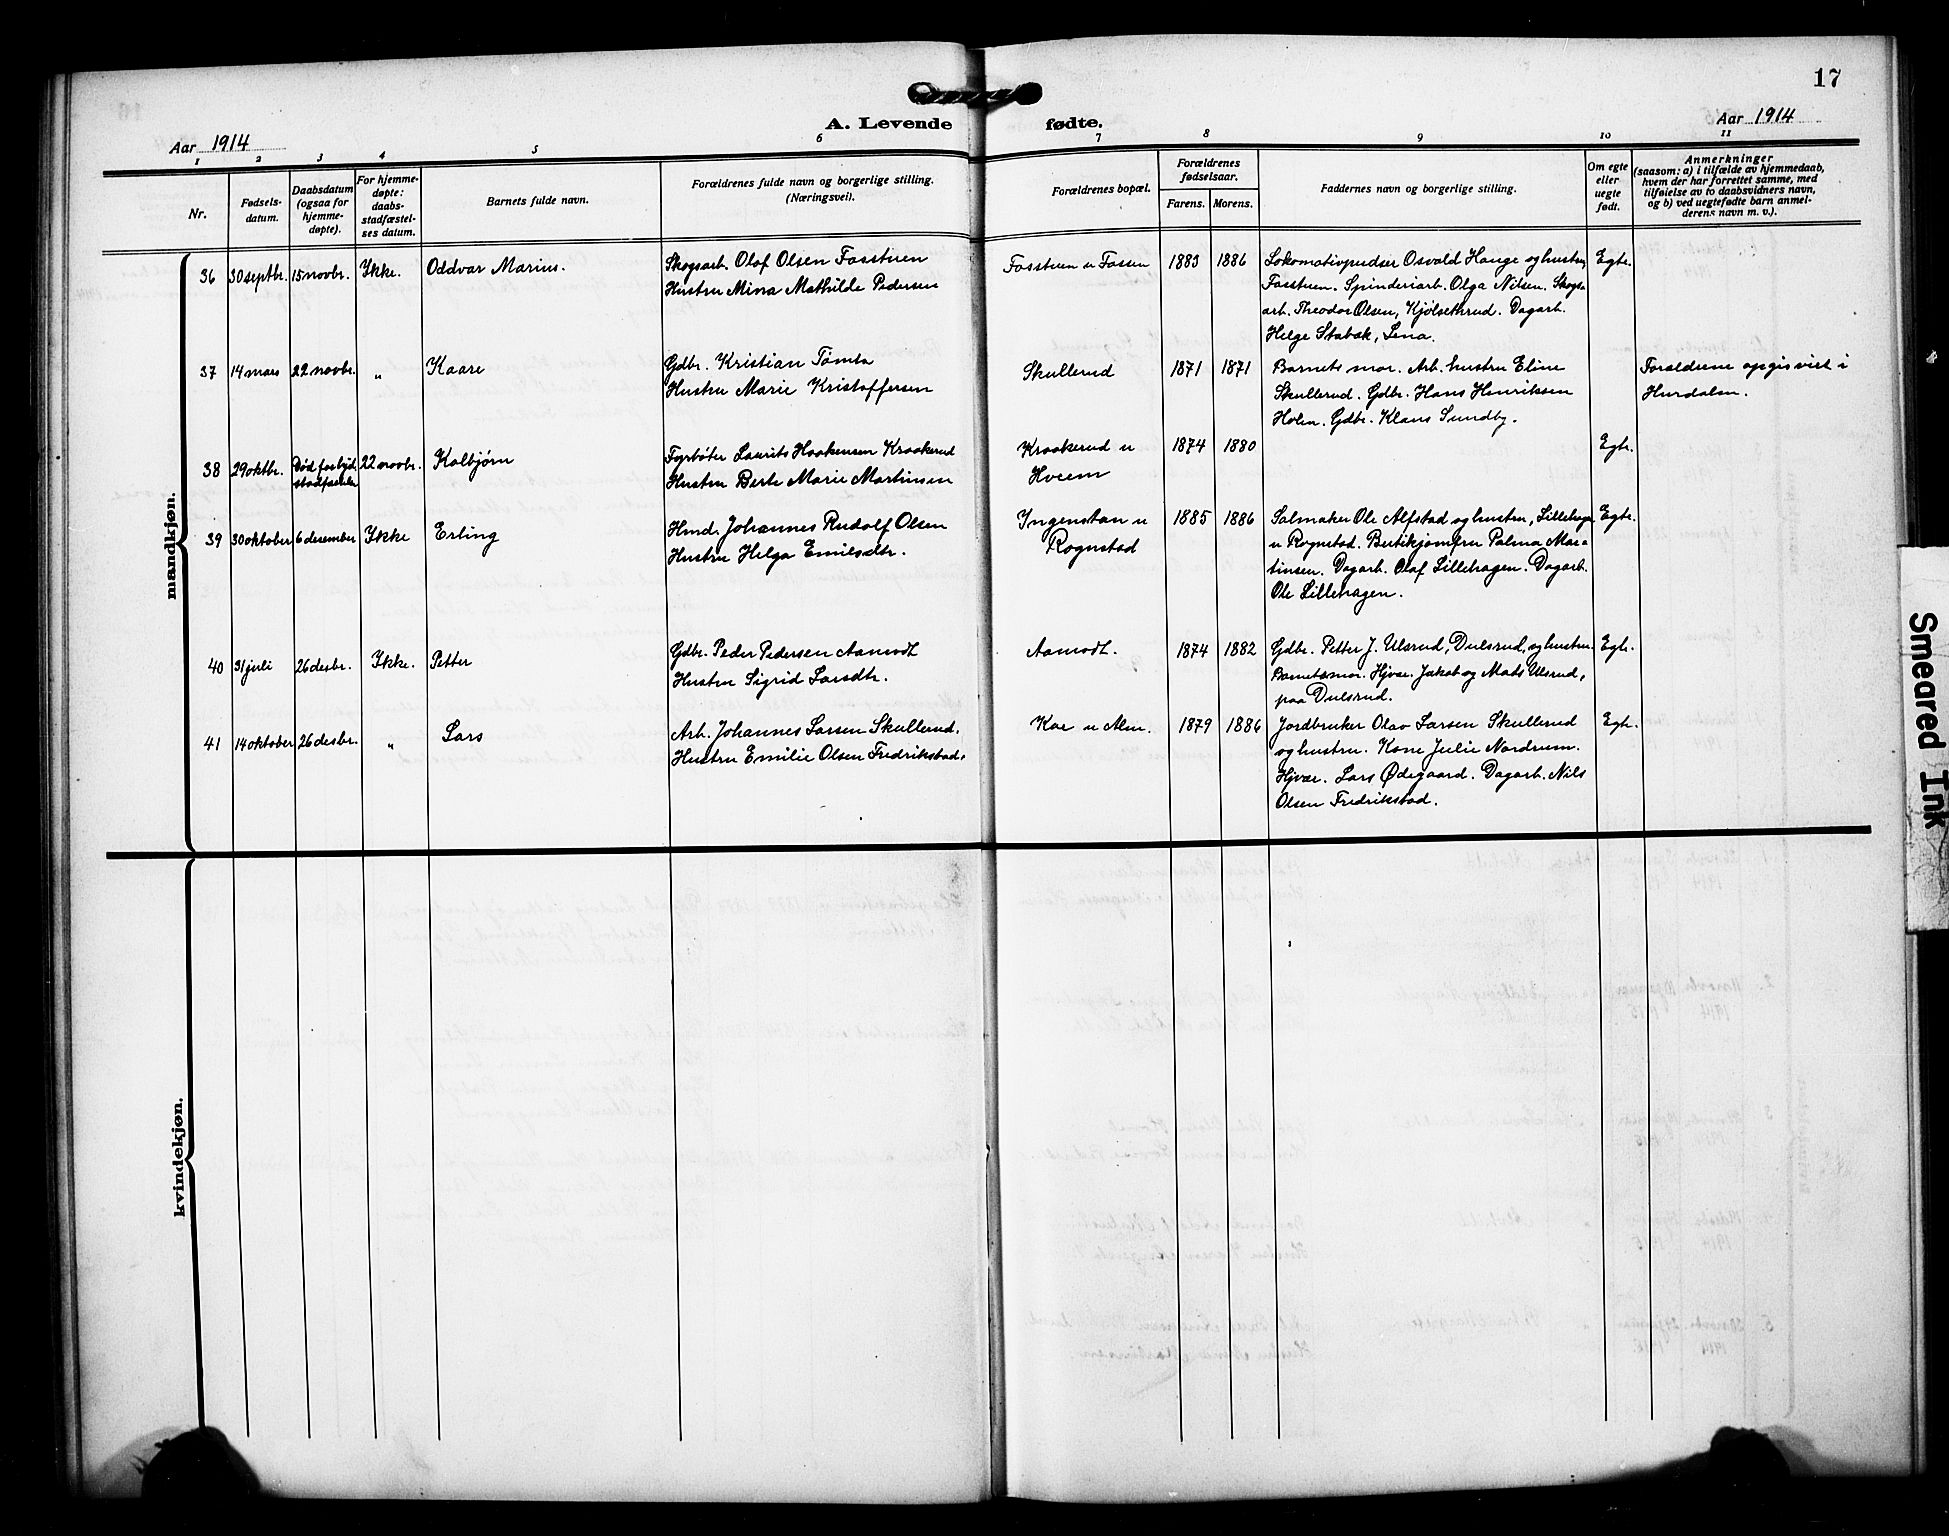 17
A. Levende fødte.
Aar 1914
Aar 1914
1 2 3 4 5 6 7 8 9 10 11
Nr.
Fødsels-
datum.
Daabsdatum
(ogsaa for
hjemme-
døpte).
For hjemme-
døpte:
daabs-
stadfæstel-
ses datum.
Barnets fulde navn.
Forældrenes fulde navn og borgerlige stilling.
(Næringsvei).
Forældrenes bopæl.
Forældrenes
fødselsaar.
Farens. Morens.
Faddernes navn og borgerlige stilling.
Om egte
eller
uegte
født.
Anmerkninger
(saasom: a) i tilfælde av hjemmedaab,
hvem der har forrettet samme, med
tilføielse av to daabsvidners navn,
og b) ved uegtefødte barn anmel-
derens navn m. v.).
mandkjøn.
36 30 septbr. 15 novbr. Ikke. Oddvar Marius.
Skogsarb. Olaf Olsen Fosstuen
Hustru Mina Mathilde Pedersen
Fosstuen u Fossen 1883 1886
Lokomotivpudser Osvald Hauge og hustru,
Fosstuen. Spinderiarb. Olga Nilsen. Skogs-
arb. Theodor Olsen, Kjölsethrud. Dagarb.
Helge Stabæk, Lena.
Egte.
37 14 mars 22 novbr. " Kaare
Gdbr. Kristian Tømte
Hustru Marie Kristoffersen
Skullerud 1871 1871
Barnets mor. Arb. hustru Eline
Skullerud. Gdbr. Hans Henriksen
Holm. Gdbr. Klaus Sundby.
Forældrene opgis viet i
Hurdalen.
38 29 oktbr. 22 novbr. Kolbjørn
Fyrbøter Laurits Haakensen Kraakerud
Hustru Berte Marie Martinsen
Kraakerud u
Hveem
1874 1880
Egte.
39 30 oktober 6 desember Ikke Erling
Hmd. Johannes Rudolf Olsen
Hustru Helga Emilsdtr.
Ingenstan u
Rognstad
1885 1886
Salmaker Ole Alfstad og hustru, Lillehagen
u Rognstad. Butikjomfru Palma Mar-
tinsen. Dagarb. Olaf Lillehagen. Dagarb.
Ole Lillehagen.
Egte.
40 31 juli 26 desbr. Ikke. Petter
Gdbr. Peder Pedersen Aamodt
Hustru Sigrid Larsdtr.
Aamodt. 1874 1882
Gdbr. Petter J. Ulsrud, Dulsrud, og hustru.
Barnets mor. Hjvær. Jakob og Mats Ulsrud,
paa Dulsrud.
Egte.
41 14 oktober 26 desbr. " Lars
Arb. Johannes Larsen Skullerud.
Hustru Emilie Olsen Fredrikstad.
Kor u Alm. 1879 1886
Jordbruker Olav Larsen Skullerud
og hustru. Kone Julie Nordrum.
Hjvær. Lars Ødegaard. Dagarb. Nils
Olsen Fredrikstad.
Egte.
kvindekjøn.
Smeared Ink